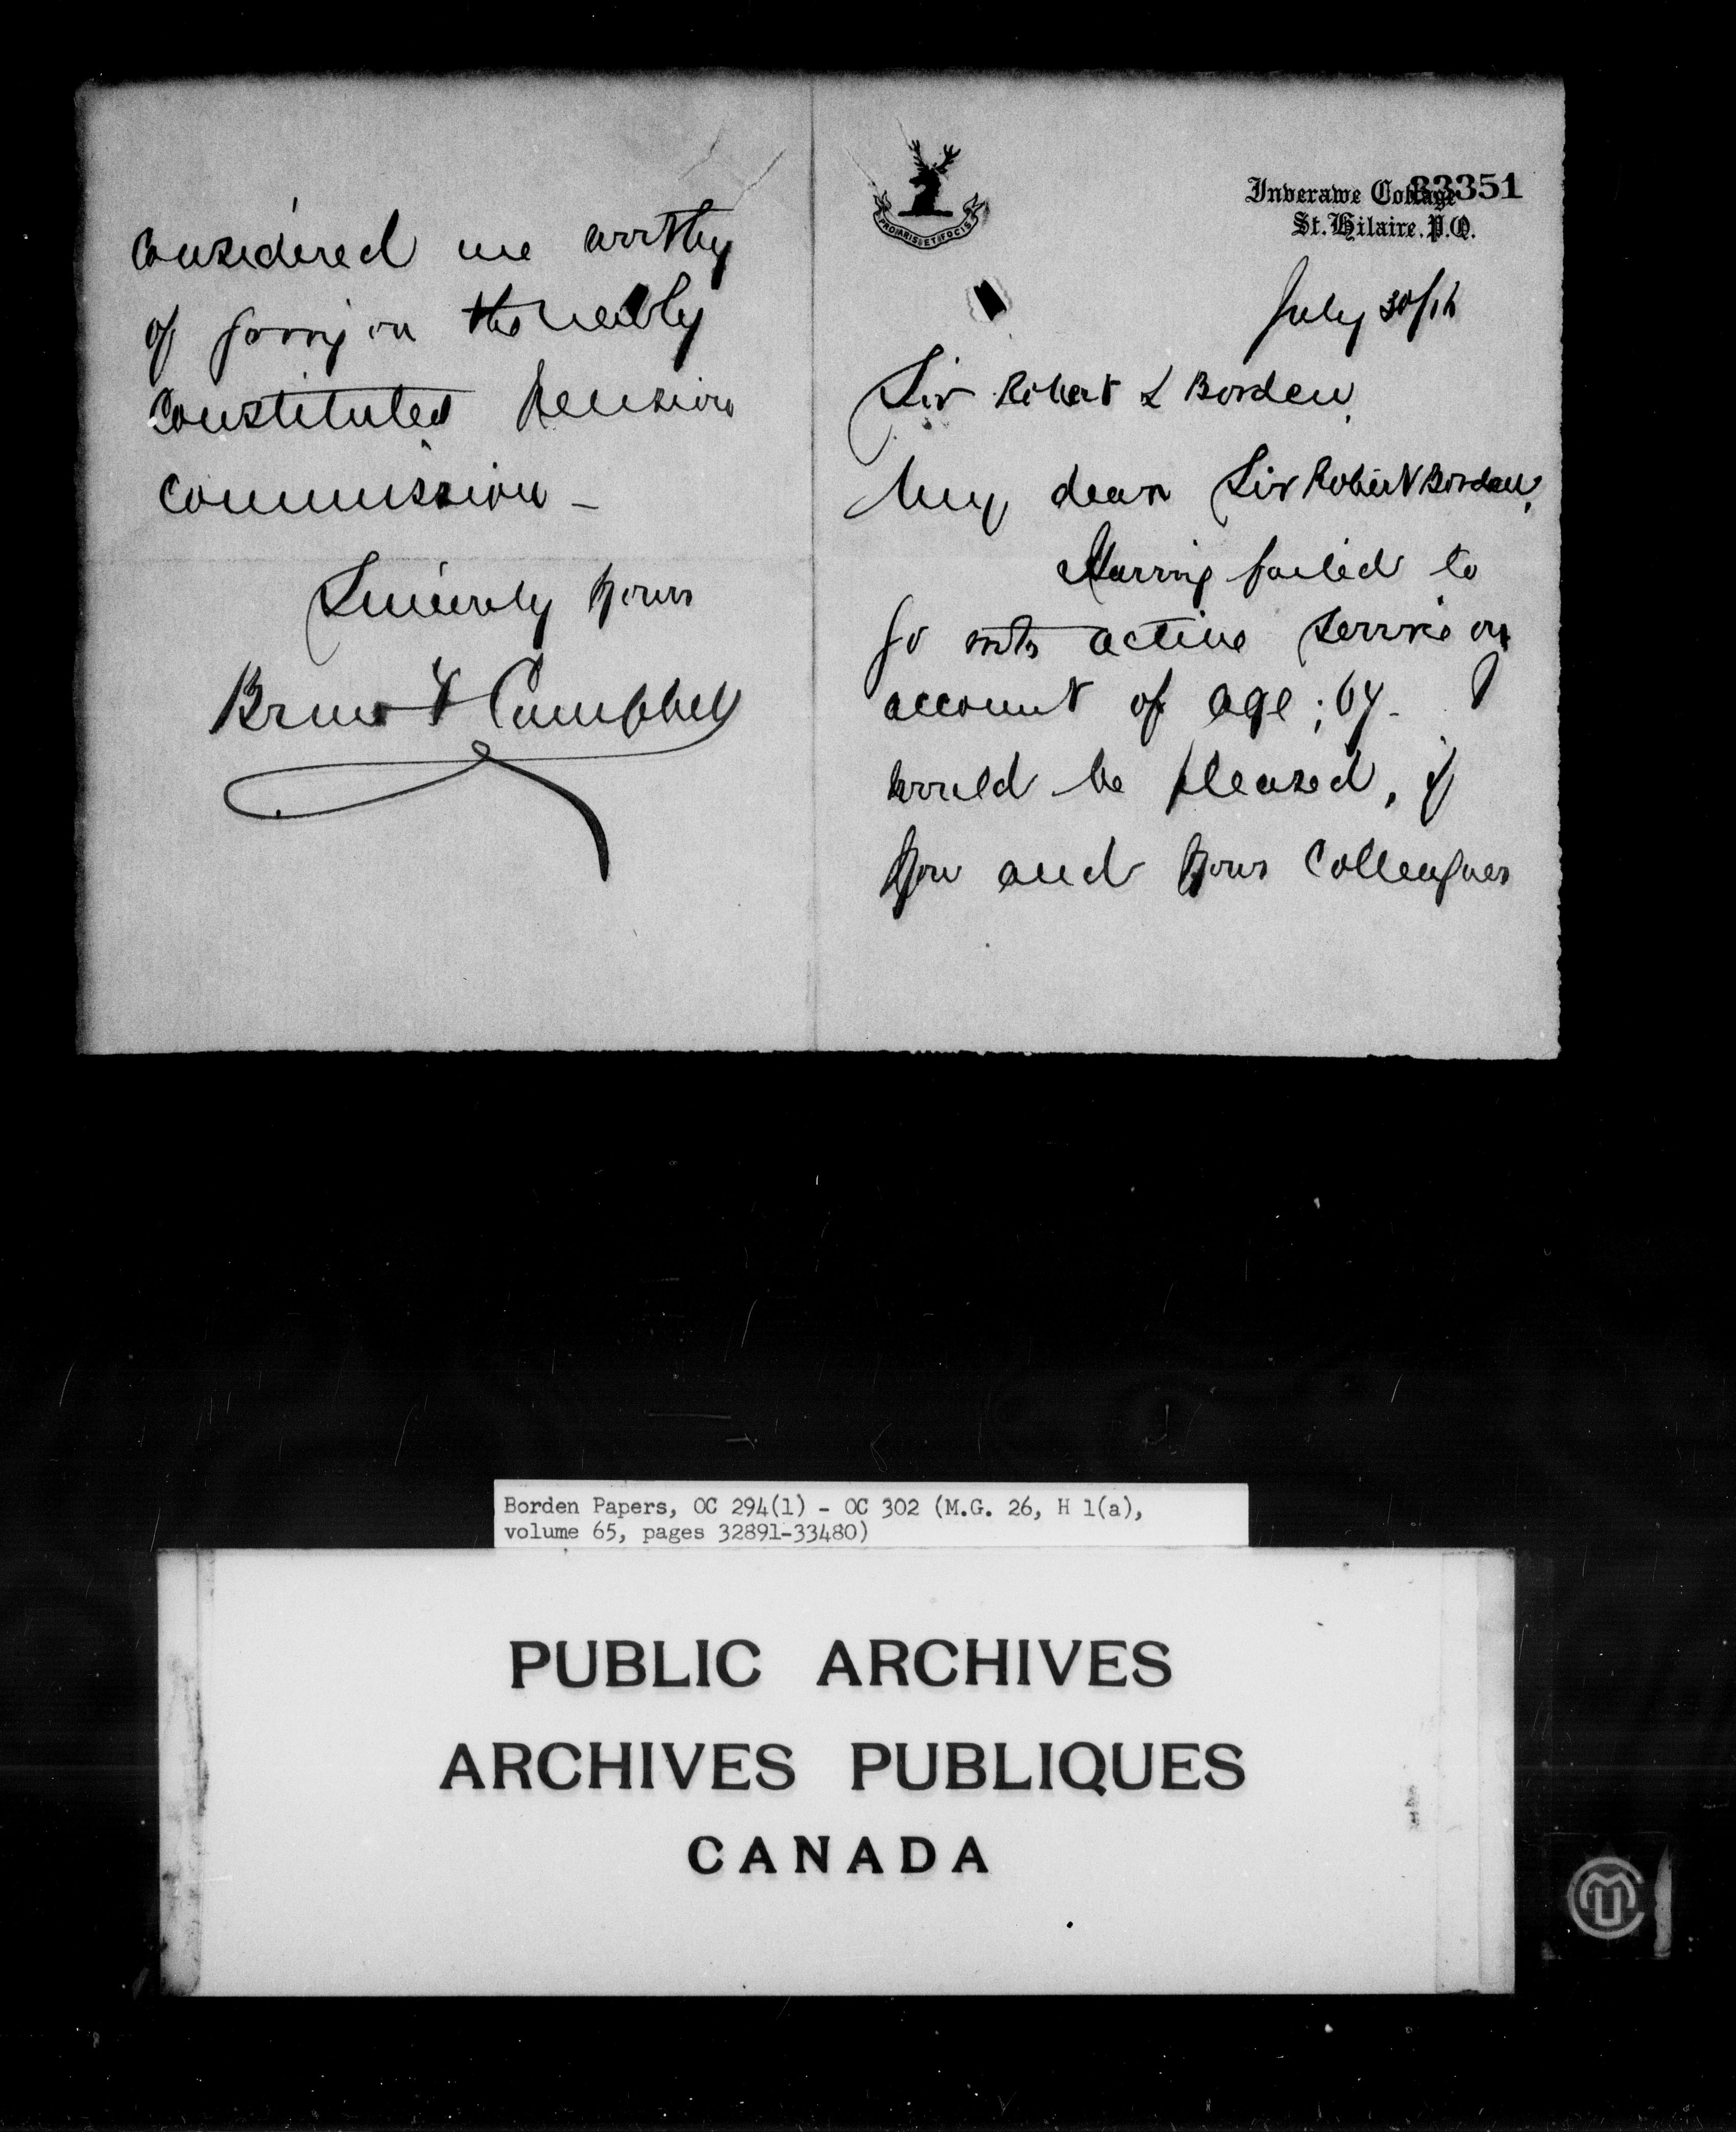 PRO ARIS ET FOCIS
33351
Inverawe Cottage
St. Hilaire. P.Q.
July 30/16
Sir Robert L Borden
My dear Sir Robert Borden,
Having failed to
go into active service on
account of age; 64. I
would be pleased, if
you and your Colleagues
Considered me worthy
of going on the newly
Constituted Pension
Commission -
Sincerely yours
Bruce F Campbell
Borden Papers, OC 294(1) - OC 302 (M.G. 26, H 1(a),
volume 65, pages 32891-33480)
PUBLIC ARCHIVES
ARCHIVES PUBLIQUES
CANADA